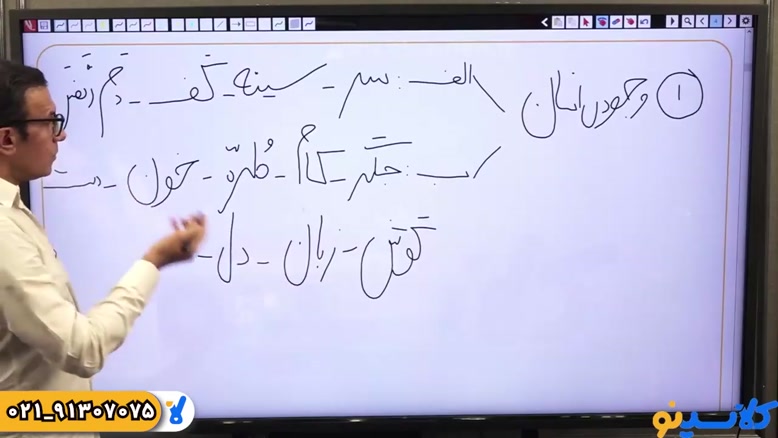 ① وجود انسان
الف: سر - سینه - کف - دم (نفس
ب: جگر - کام - طره - خون - دست
گوش - زبان - دل -
۰۲۱_۹۱۳۰۷۰۷۵
کلاسینو